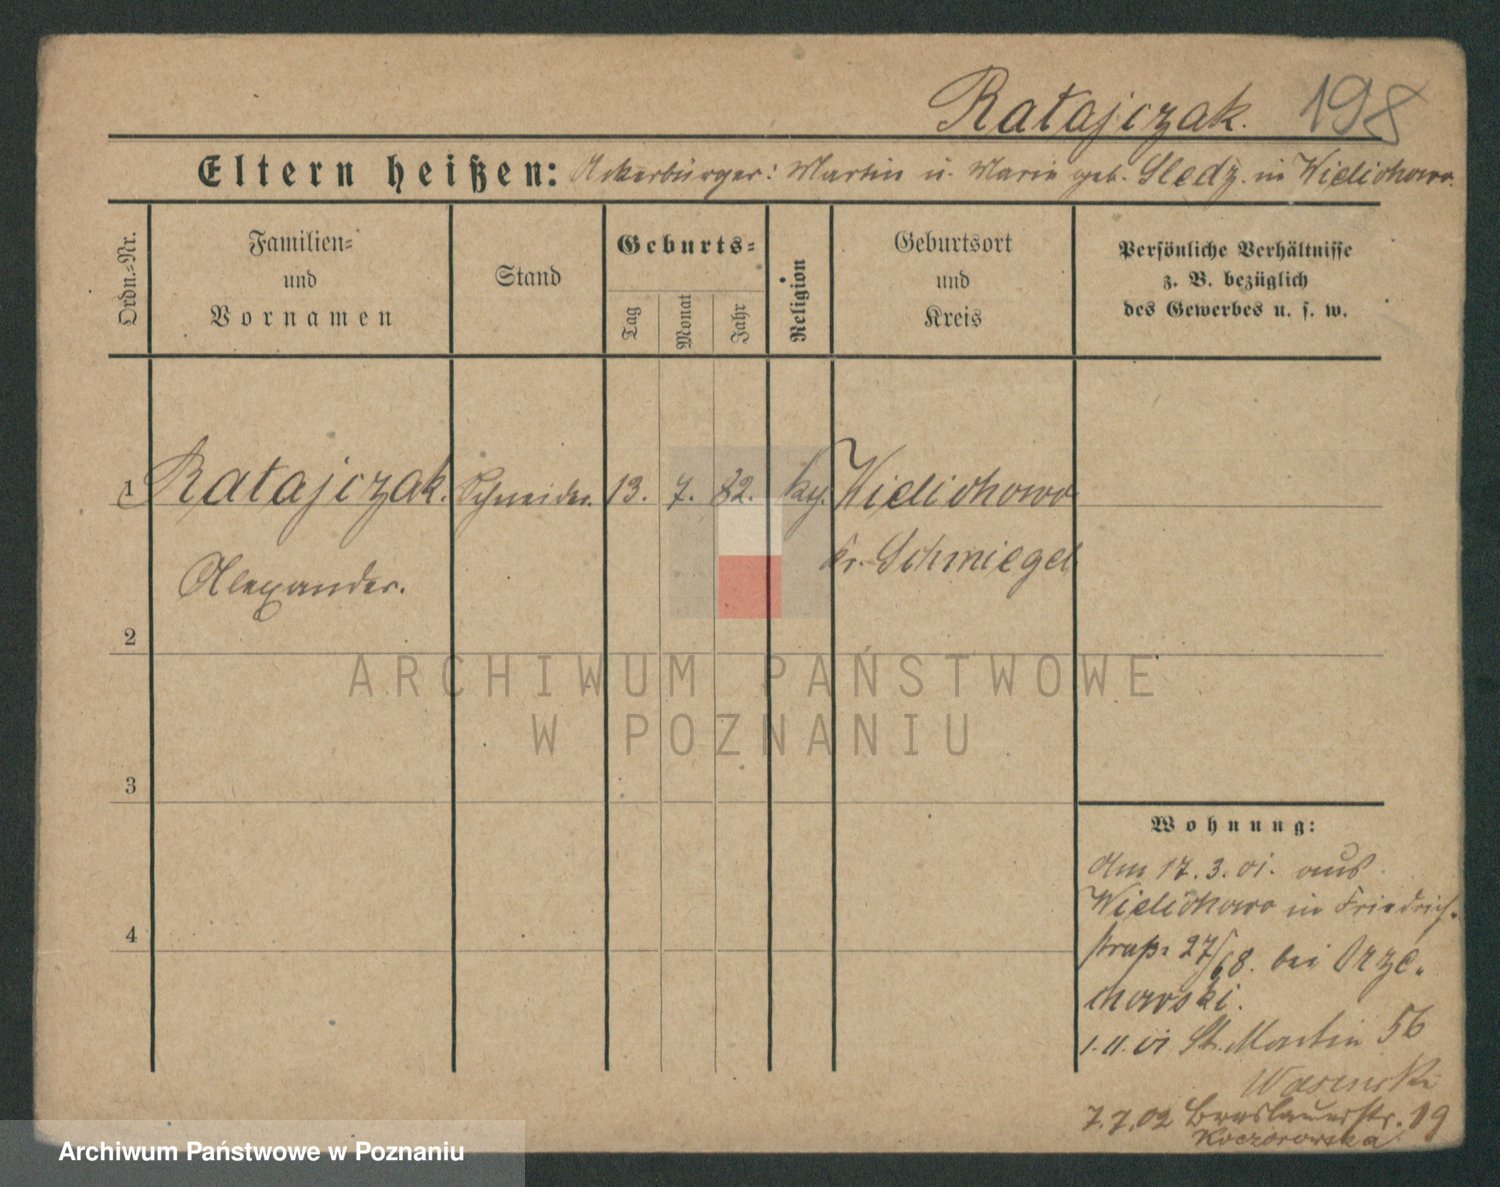 Ratajczak. 198
Eltern heißen: Ackerbürger: Martin u. Marie geb. Sledz. in Wielichowo.
Ordn.-Nr.
Familien-
und
Vornamen
Stand
Geburts-
Tag
Monat
Jahr
Religion
Geburtsort
und
Kreis
Persönliche Verhältnisse
z. B. bezüglich
des Gewerbes u. s. w.
1 Ratajczak. Schneider. 13. 7. 82. kg. Wielichowo
Alexander. Kr. Schmiegel
2
3
4
Wohnung:
Am 17.3.01. aus
Wielichowo in Friedrich-
straße 27/68. bei Orze-
chowski.
1.11.01 St. Martin 56
Wasinski
7.7.02 Breslauerstr. 19
Koczorowska
ARCHIWUM PAŃSTWOWE
W POZNANIU
Archiwum Państwowe w Poznaniu